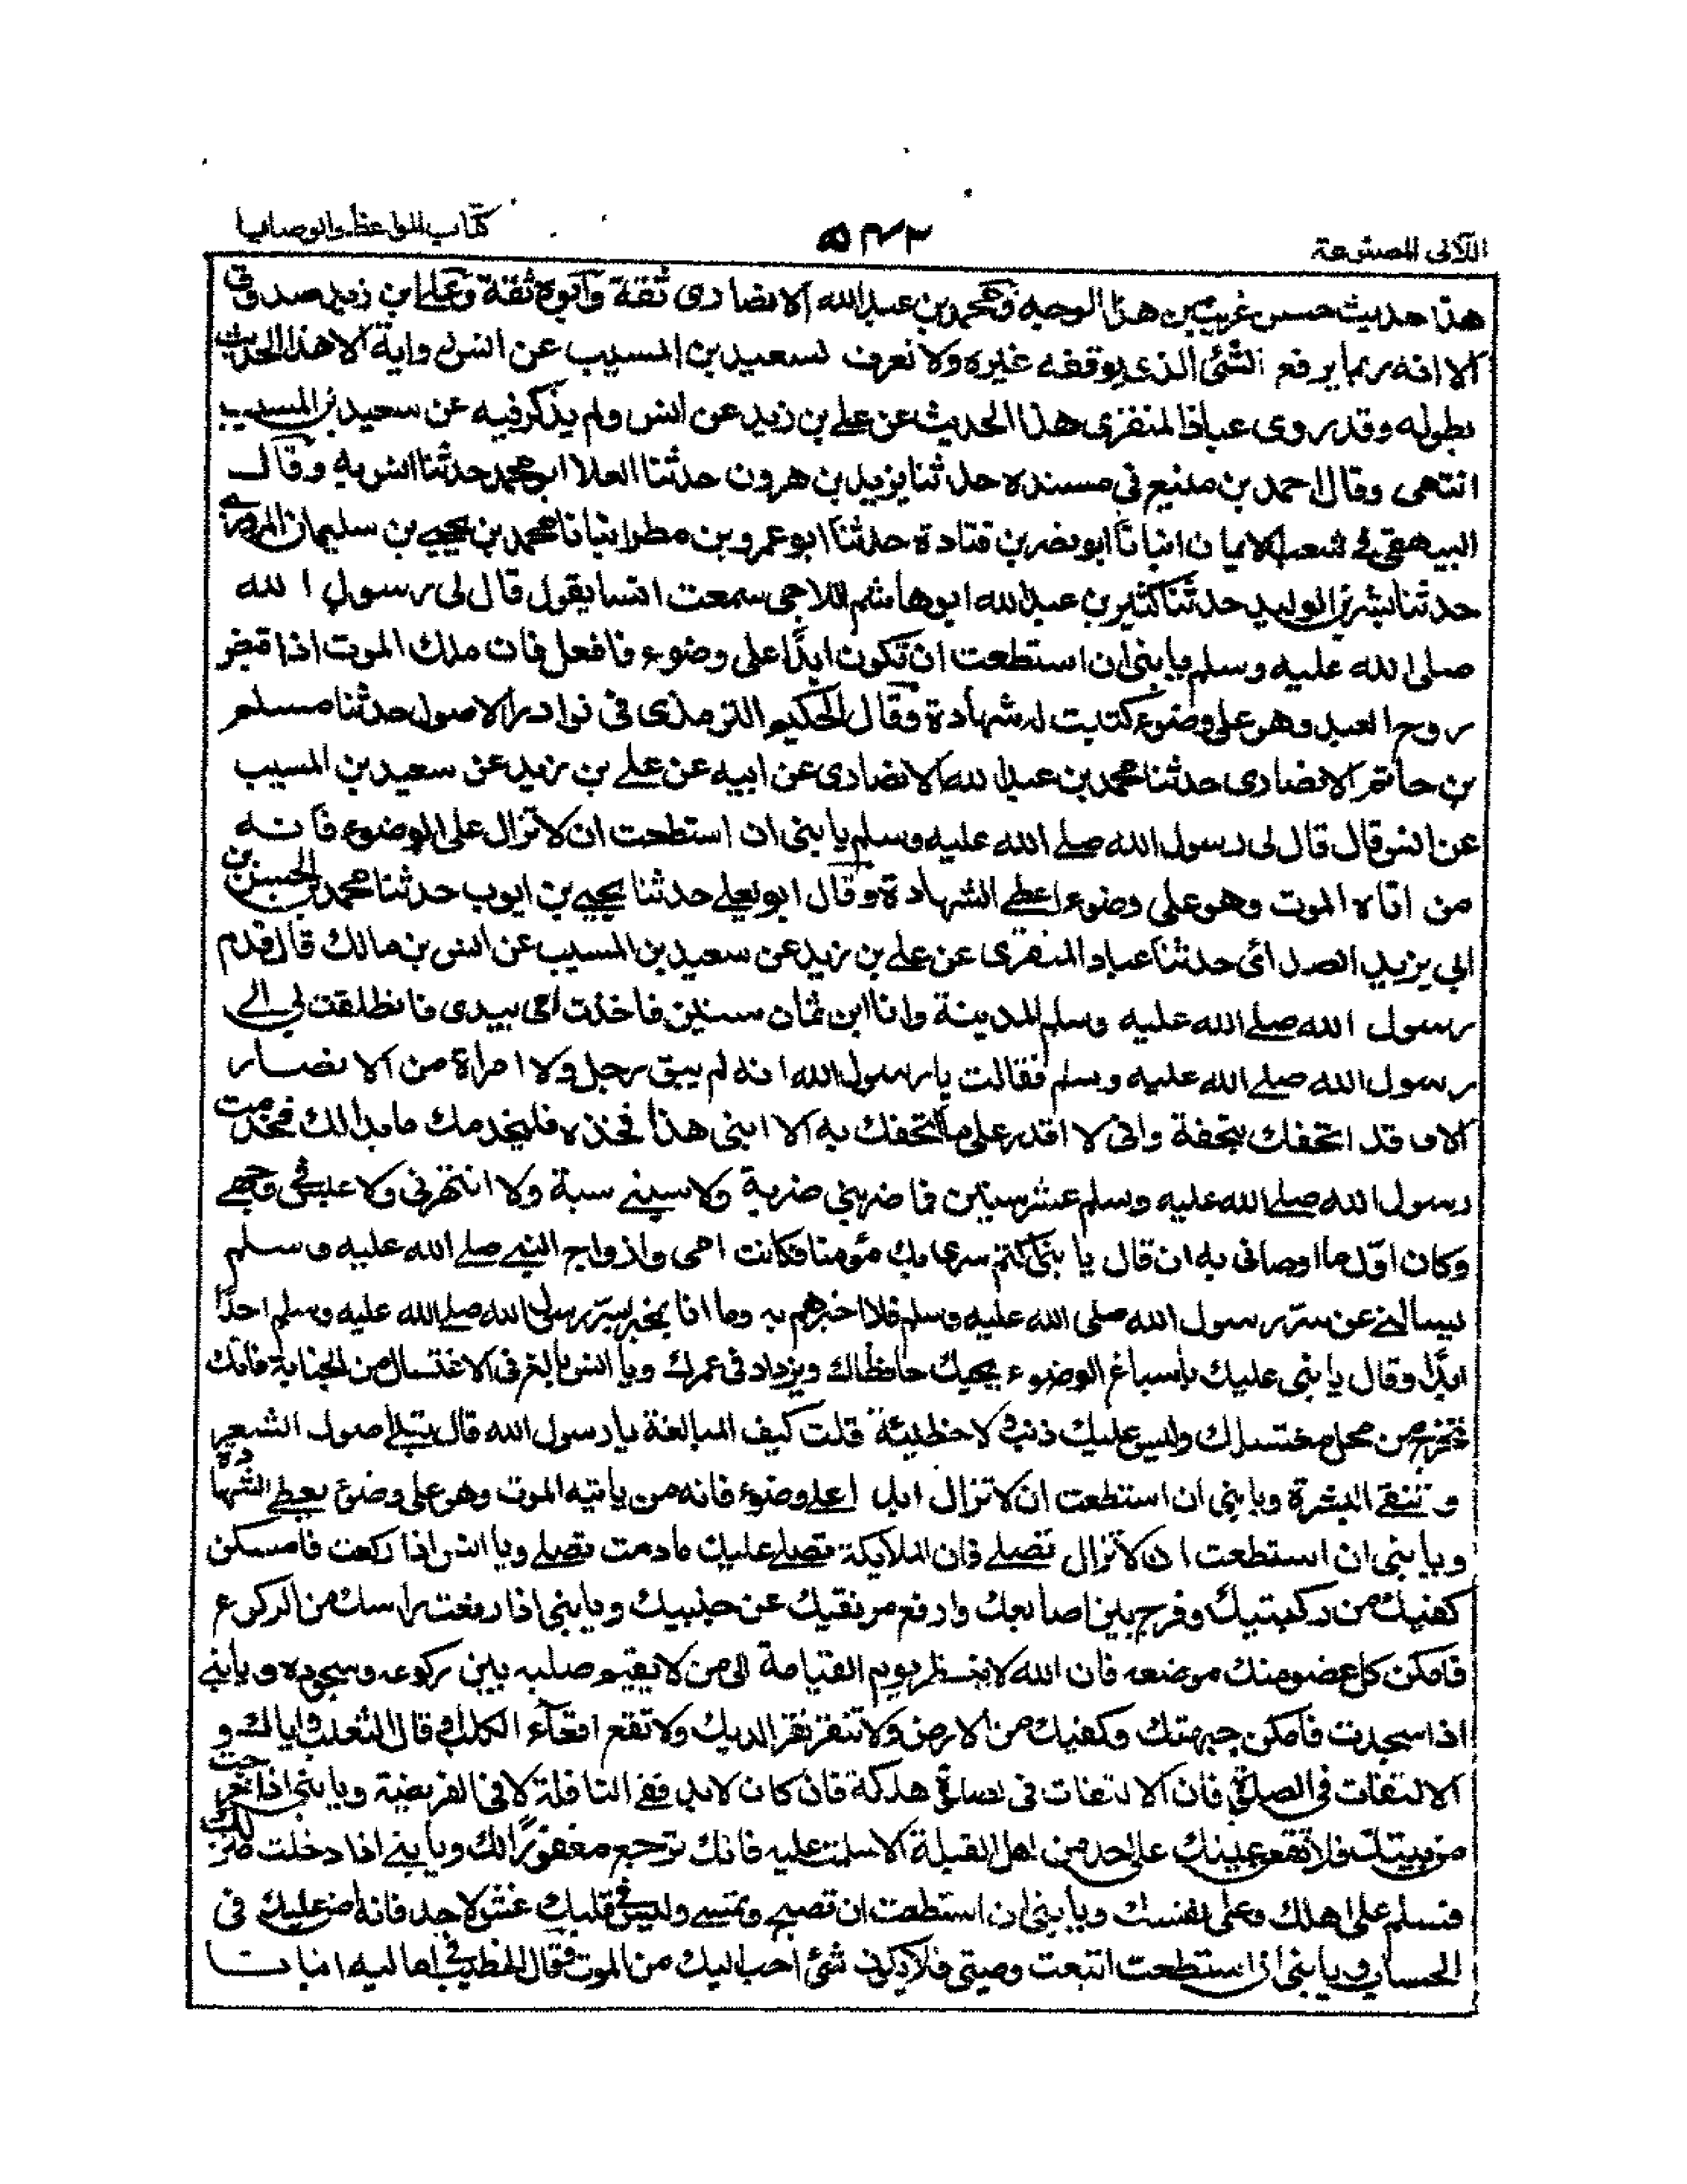 اللآلى المصنوعة
كتاب المواعظ والوصايا
هذا حديث حسن غريب من هذا الوجه ومحمد بن عبد الله الانصارى ثقة وابوه ثقة وعلى ابن زيد صدوق
الا انه ربما يرفع الشئ الذى يوقفه غيره ولا نعرف لسعيد بن المسيب عن انس رواية الا هذا الحديث
بطوله وقد روى عباد المنقرى هذا الحديث عن على بن زيد عن انس ولم يذكر فيه عن سعيد بن المسيب
انتهى وقال احمد بن منيع فى مسنده حدثنا يزيد بن هرون حدثنا العلا ابو محمد حدثنا انس به وقال
البيهقى فى شعب الايمان انبانا ابو نصر بن قتادة حدثنا ابو عمرو بن مطر انبانا محمد بن يحيى بن سليمان المروزى
حدثنا بشر بن الوليد حدثنا كثير بن عبد الله ابو هاشم اللاجى سمعت انسا يقول قال لى رسول الله
صلى الله عليه وسلم يا بنى ان استطعت ان تكون ابدًا على وضوء فافعل فان ملك الموت اذا قبض
روح العبد وهو على وضوء كتبت له شهادة وقال الحكيم الترمذى فى نوادر الاصول حدثنا مسلم
بن حاتم الانصارى حدثنا محمد بن عبد الله الانصارى عن ابيه عن على بن زيد عن سعيد بن المسيب
عن انس قال قال لى رسول الله صلى الله عليه وسلم يا بنى ان استطعت ان لا تزال على الوضوء فانه
من اتاه الموت وهو على وضوء اعطى الشهادة وقال ابو يعلى حدثنا يحيى بن ايوب حدثنا محمد بن الحسن بن
ابى يزيد الصدائى حدثنا عباد المنقرى عن على بن زيد عن سعيد بن المسيب عن انس بن مالك قال قدم
رسول الله صلى الله عليه وسلم المدينة وانا ابن ثمان سنين فاخذت امى بيدى فانطلقت بى الى
رسول الله صلى الله عليه وسلم فقالت يا رسول الله انه لم يبق رجل ولا امراة من الانصار
الا وقد اتحفك بتحفة وانى لا اقدر على ما اتحفك به الا ابنى هذا فخذه فليخدمك ما بدا لك فخدمت
رسول الله صلى الله عليه وسلم عشر سنين فما ضربنى ضربة ولا سبنى سبة ولا انتهرنى ولا عبس فى وجهى
وكان اول ما اوصانى به ان قال يا بنى اكتم سرى تك مؤمنا فكانت امى وازواج النبى صلى الله عليه وسلم
يسالننى عن سر رسول الله صلى الله عليه وسلم فلا اخبرهم به وما انا بمخبر بسر رسول الله صلى الله عليه وسلم احدًا
ابدًا وقال يا بنى عليك باسباغ الوضوء يحبك حافظاك ويزداد فى عمرك ويا انس بالغ فى الاغتسال من الجنابة فانك
تخرج من محل مغتسلك وليس عليك ذنب ولا خطيئة قلت كيف المبالغة يا رسول الله قال تبل اصول الشعر
و تنقى البشرة ويا بنى ان استطعت ان لا تزال ابدا على وضوء فانه من ياتيه الموت وهو على وضوء يعطى الشهادة
ويا بنى ان استطعت ان لا تزال تصلى فان الملايكة تصلى عليك ما دمت تصلى ويا انس اذا ركعت فامسكن
كفيك من ركبتيك وفرج بين اصابعك وارفع مرفقيك عن جنبيك ويا بنى اذا رفعت راسك من الركوع
فامكن كل عضو منك موضعه فان الله لا ينظر يوم القيامة الى من لا يقيم صلبه بين ركوعه وسجوده ويا بنى
اذا سجدت فامكن جبهتك وكفيك من الارض ولا تنقر نقر الديك ولا تقع اقعآء الكلب او قال الثعلب واياك و
الالتفات فى الصلوة فان الالتفات فى الصلوة هلكة فان كان لابد ففى النافلة لا فى الفريضة ويا بنى اذا خرجت
من بيتك فلا تقع عينك على احد من اهل القبلة الا سلمت عليه فانك ترجع مغفورًا لك ويا بنى اذا دخلت منزلك
فسلم على اهلك وعلى نفسك ويا بنى ان استطعت ان تصبح وتمسى وليس فى قلبك غش لاحد فانه اهون عليك فى
الحساب ويا بنى ان استطعت اتبعت وصيتى فلا يكن شئ احب اليك من الموت وقال الخطيب فى اماليه انبانا